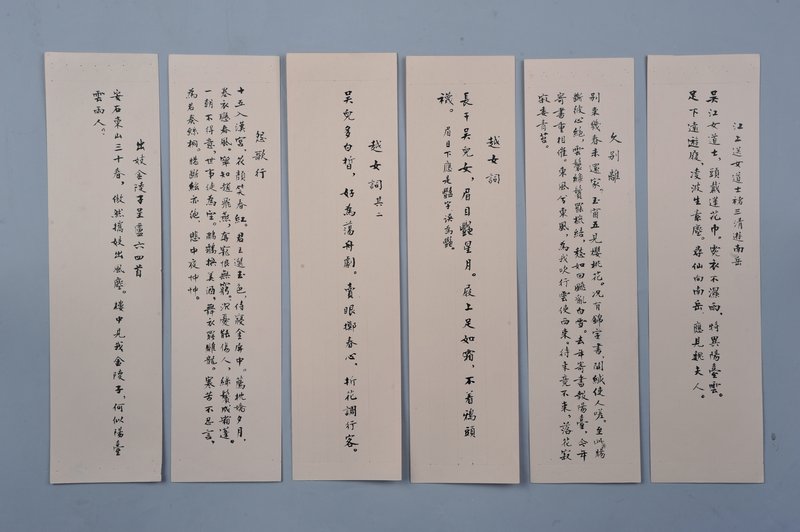 江上送女道士褚三清遊南岳
吳江女道士，頭戴蓮花巾。霓衣不濕雨，特異陽臺雲。
足下遠遊履，凌波生素塵。尋仙向南岳，應見魏夫人。
久別離
別來幾春未還家。玉窗五見櫻桃花。況有錦字書，開緘使人嗟。至此腸
斷彼心絕，雲鬟綠鬢罷梳結，愁如回飆亂白雪。去年寄書報陽臺，今年
寄書重相催。東風兮東風，為我吹行雲使西來。待來竟不來，落花寂
寂委青苔。
越女詞
長干吳兒女，眉目艷星月。屐上足如霜，不着鴉頭
襪。眉目下應是豔字誤為艷。
越女詞其二
吳兒多白皙，好為蕩舟劇。賣眼擲春心，折花調行客。
怨歌行
十五入漢宮，花顏笑春紅。君王選玉色，侍寢金屏中。薦枕嬌夕月，
卷衣戀春風。寧知趙飛燕，奪寵恨無窮。沉憂能傷人，綠鬢成霜蓬。
一朝不得意，世事徒為空。鷫鸘換美酒，舞衣罷雕龍。寒苦不忍言，
為君奏絲桐。腸斷絃亦絕，悲中夜忡忡。
出妓金陵子呈盧六四首
安石東山三十春，傲然攜妓出風塵。樓中見我金陵子，何似陽臺
雲雨人。